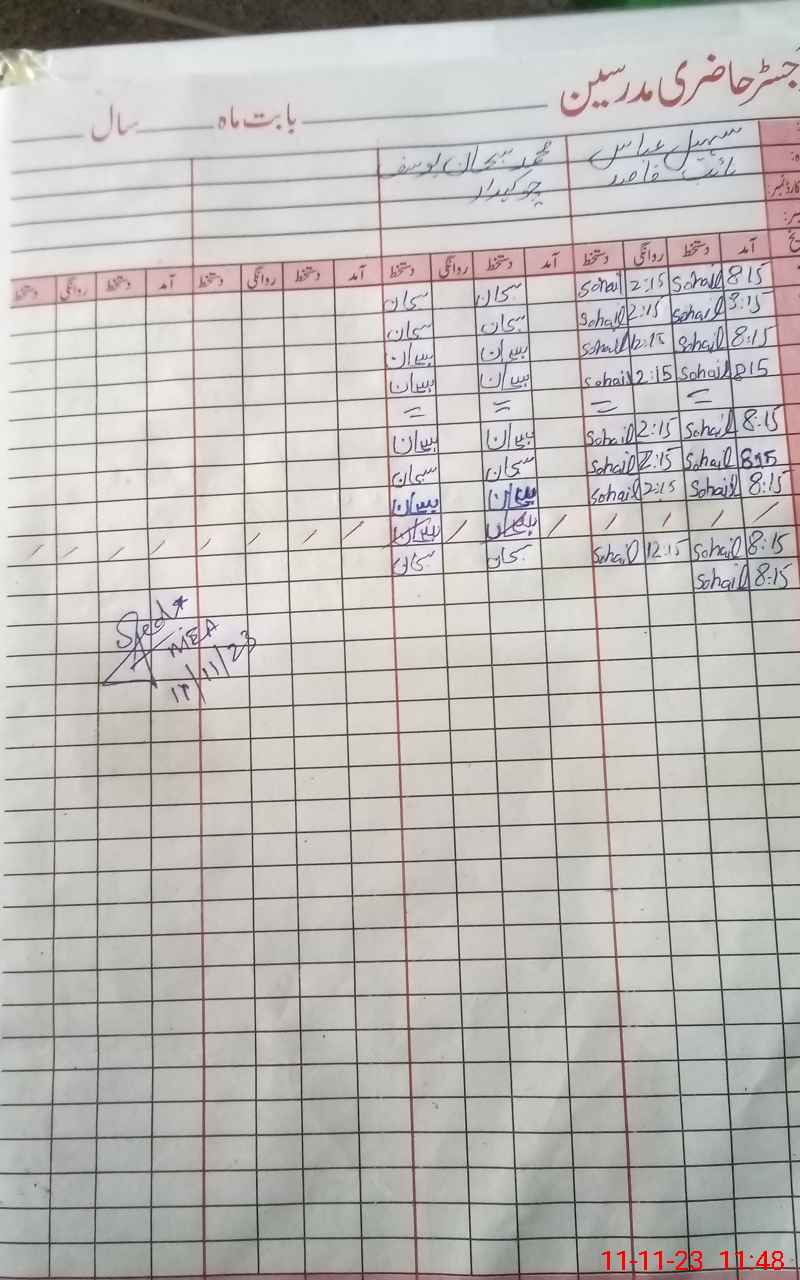 جسٹر حاضری مدرسین بابت ماہ سال
سہیل عباس محمد سبحان یوسف
نائب قاصد چوکیدار
آمد دستخط روانگی دستخط آمد دستخط روانگی دستخط آمد دستخط روانگی دستخط آمد دستخط روانگی دستخط
8:15 Sohail 2:15 Sohail سبحان سبحان
8:15 Sohail 2:15 Sohail سبحان سبحان
8:15 Sohail 2:15 Sohail سبحان سبحان
815 Sohail 2:15 Sohail سبحان سبحان
= = = =
8:15 Sohail 2:15 Sohail سبحان سبحان
815 Sohail 2:15 Sohail سبحان سبحان
8:15 Sohail 2:15 Sohail سبحان سبحان
/ / / / سبحان / سبحان / / / / / / / /
8:15 Sohail 12:15 Sohail سبحان سبحان
8:15 Sohail
AEA
11/23
11-11-23 11:48